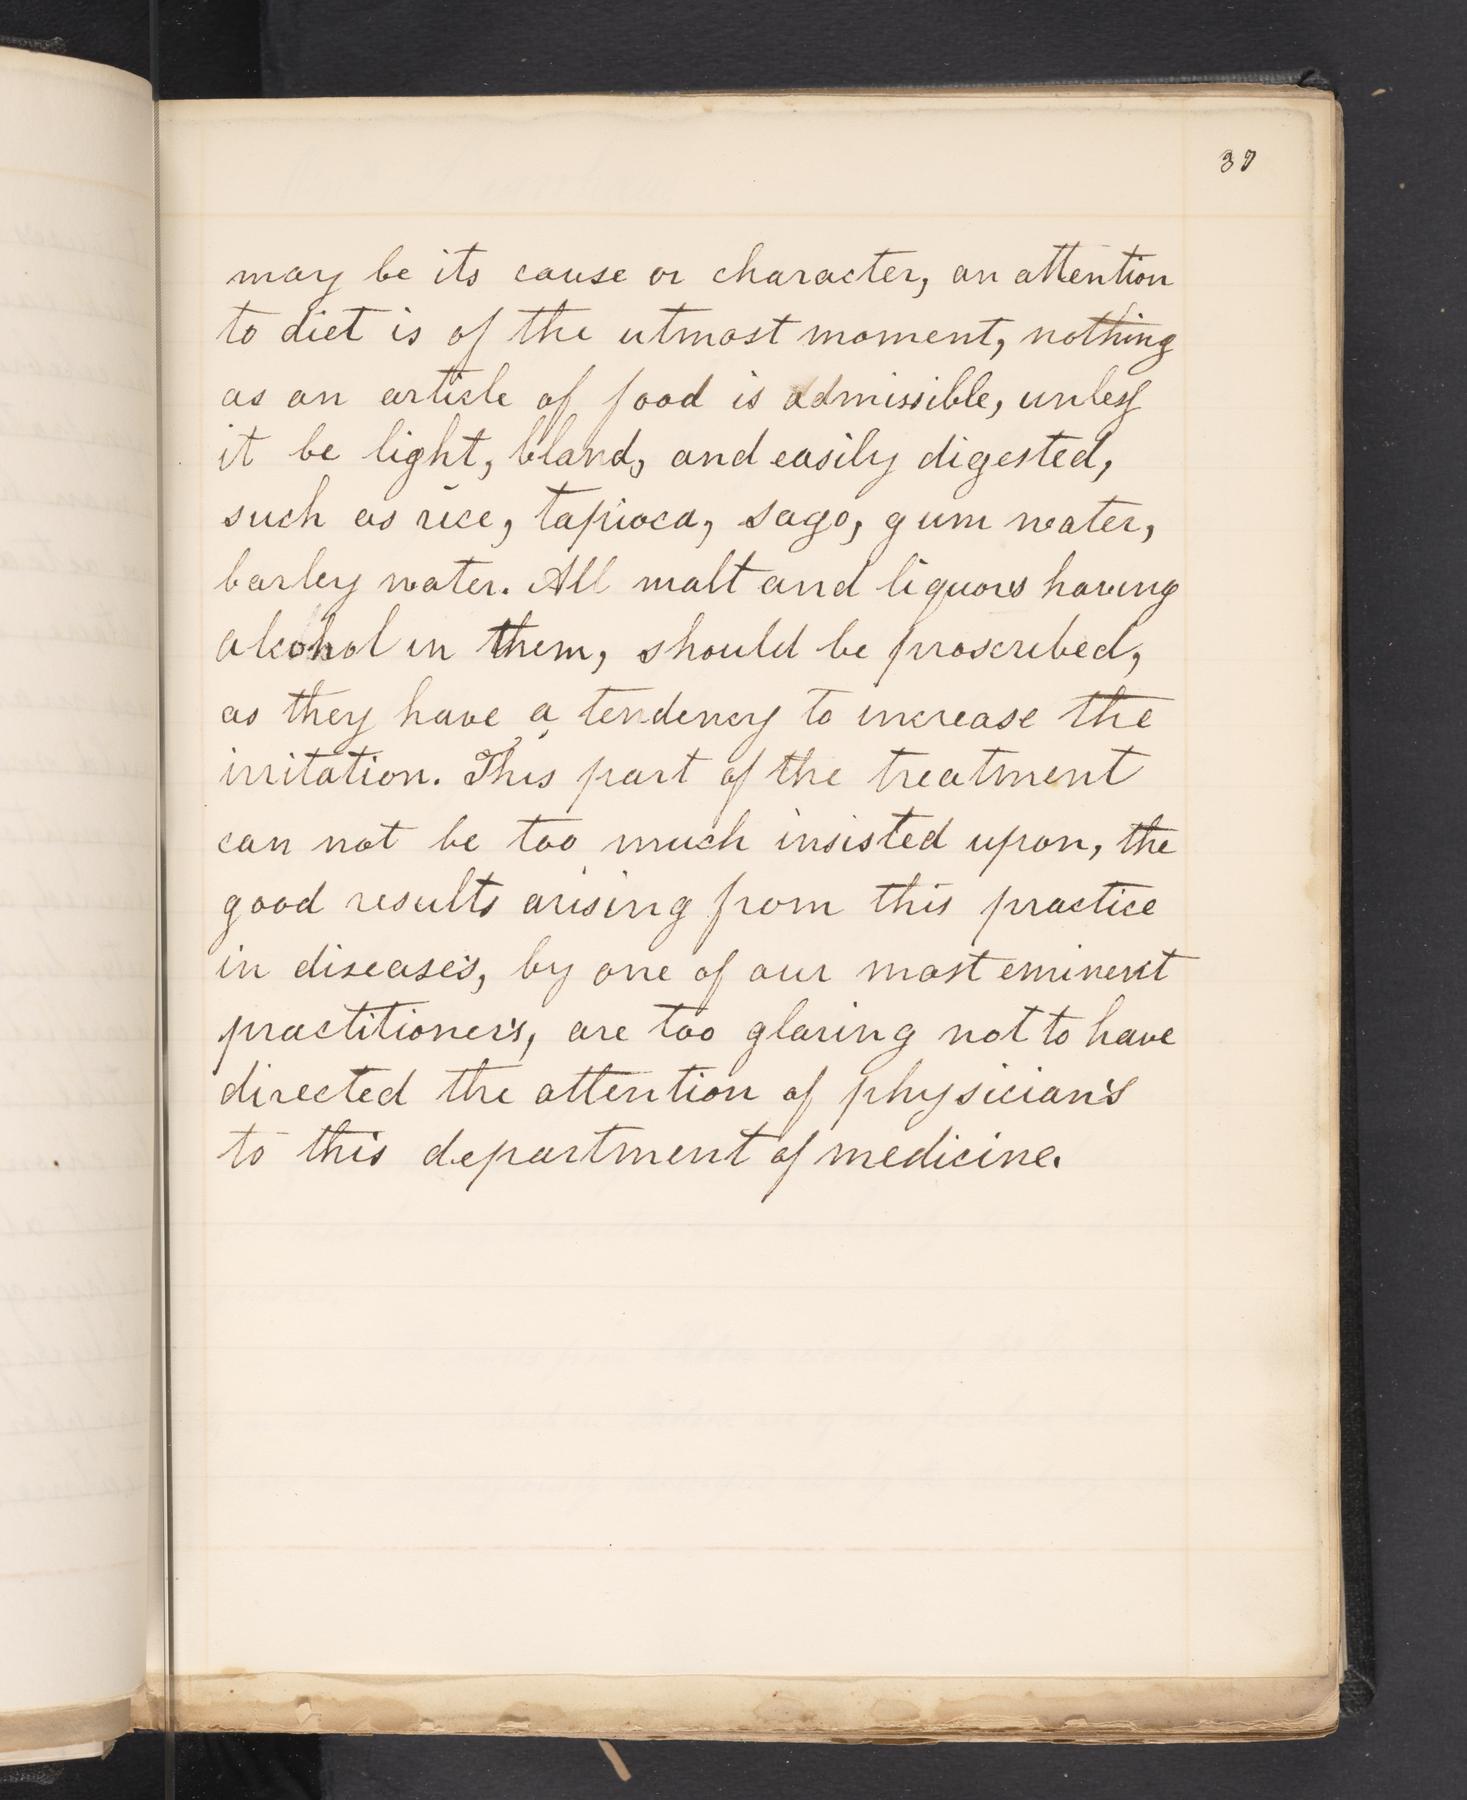 37
may be its cause or character, an attention
to diet is of the utmost moment, nothing
as an article of food is admissible, unless
it be light, bland, and easily digested,
such as rice, tapioca, sago, gum water,
barley water. All malt and liquors having
alcohol in them, should be proscribed,
as they have a tendency to increase the
irritation. This part of the treatment
can not be too much insisted upon, the
good results arising from this practice
in disease's, by one of our most eminent
practitioner's, are too glaring not to have
directed the attention of physician's
to this department of medicine.